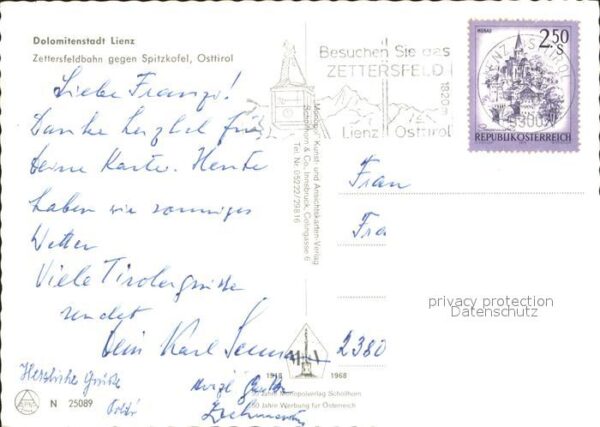 Dolomitenstadt Lienz
Zettersfeldbahn gegen Spitzkofel, Osttirol
Liebe Franzi!
Danke herzlich für
Deine Karte. Heute
haben wir sonniges
Wetter
Viele Tirolergrüße
sendet
Dein Karl
Herzliche Grüße
N 25089
Besuchen Sie das
ZETTERSFELD
1820m
Lienz Osttirol
2.50
S
REPUBLIK ÖSTERREICH
Monopol - Kunst- und Ansichtskarten-Verlag
Schöllhorn & Co. Innsbruck,
Tel. Nr. 05222/29816
Frau
Fra
privacy protection
Datenschutz
2380
1918 1968
50 Jahre Monopolverlag Schöllhorn
50 Jahre Werbung für Österreich